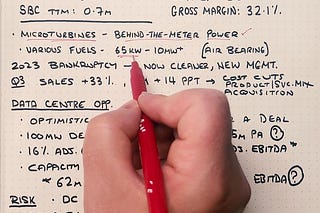 SBC TTM: 0.7M GROSS MARGIN: 32.1%
• MICROTURBINES - BEHIND-THE-METER POWER ✓
• VARIOUS FUELS - 65KW - 10MW+ (AIR BEARING)
2023 BANKRUPTCY NOW CLEANER, NEW MGMT.
Q3 SALES +33% + 14 PPT → COST CUTS
PRODUCT/SVC. MIX
ACQUISITION
DATA CENTRE OPP.
• OPTIMISTIC A DEAL
• 100MW DE 5M PA ?
• 16% ADS. ADS. EBITDA*
• CAPACITY
* 62M EBITDA ?
RISK • DC